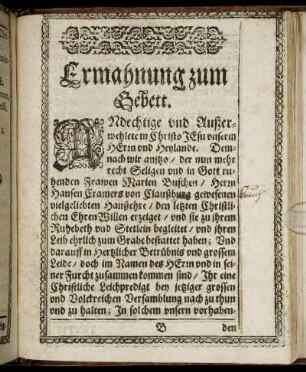 Ermahnung zum
Gebett.
ANdechtige vnd Außer-
wehlete in Christo JEsu vnserm
HErrn vnd Heylande. Dem-
nach wir anitzo / der nun mehr
recht Seligen vnd in Gott ru-
henden Frawen Marien Buschen / Herrn
Hansen Cramers von Claußbung gewesenen
vielgeliebten Haußehre / den letzten Christli-
chen Ehren Willen erzeiget / vnd sie zu jhrem
Ruhebeth vnd Stetlein begleitet / vnd jhren
Leib ehrlich zum Grabe bestattet haben; Vnd
darauff in Hertzlicher Betrübnis vnd grossem
Leide / doch im Namen des HErrn vnd in sei-
ner Furcht zusammen kommen sind / Jhr eine
Christliche Leichpredigt bey jetziger grossen
vnd Volckreichen Versamblung nach zu thun
vnd zu halten; In solchem vnserm vorhaben
B den